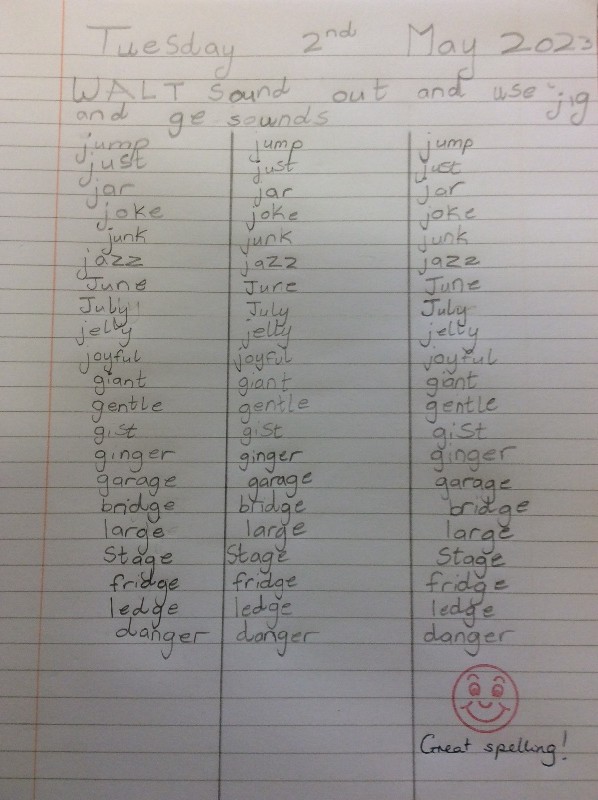 Tuesday 2nd May 2023
WALT sound out and use j,g
and ge sounds
jump jump jump
just just just
jar jar jar
joke joke joke
junk junk junk
jazz jazz jazz
June June June
July July July
jelly jelly jelly
joyful joyful joyful
giant giant giant
gentle gentle gentle
gist gist gist
ginger ginger ginger
garage garage garage
bridge bridge bridge
large large large
Stage Stage Stage
fridge fridge fridge
ledge ledge ledge
danger danger danger
Great spelling!